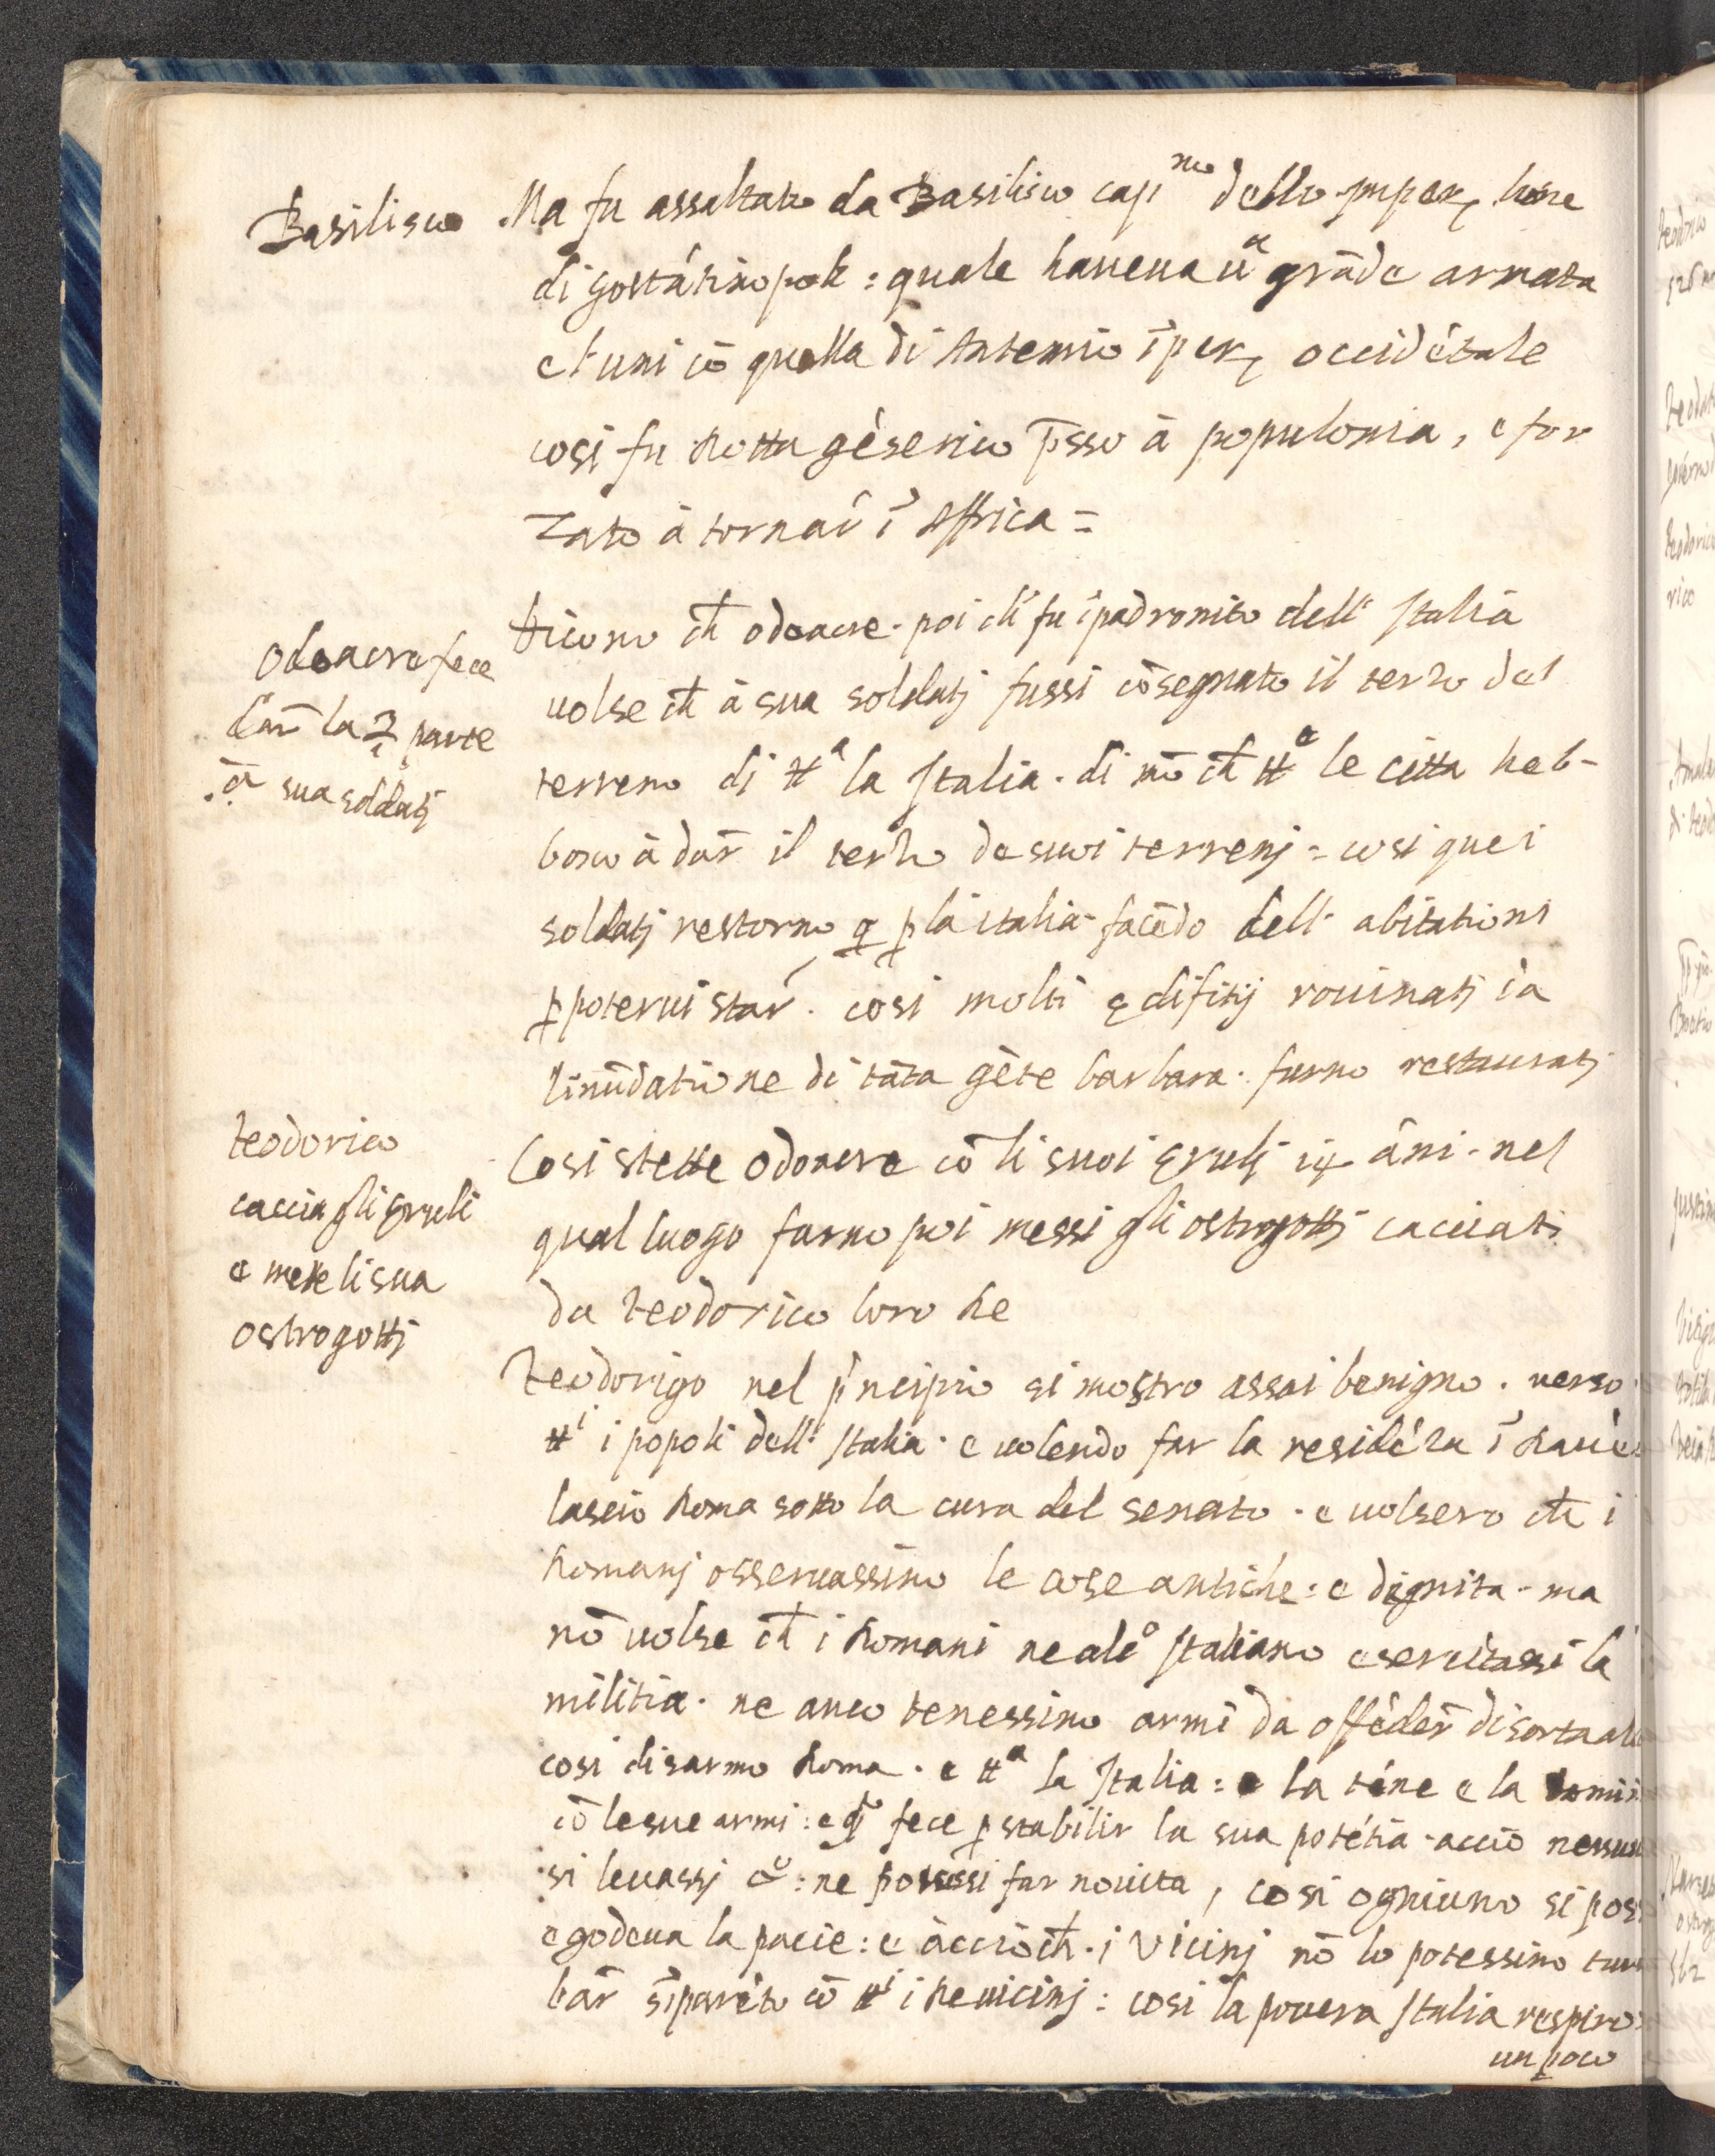 Basilisco
Ma fu assaltato da Basilisco cap^no dello imper, lione
di gostātinopoli : quale haueua ū^a grāde armata
et uni cō quella di Antemio īper, occidētale
cosi fu Rotto gēserico p̄sso ā populonia, e for
zato à tornar̄ ī Affrica =
odoacre fece
dar̄ la 3 parte
ā sua soldatj
Dicono ch̄ odoacre . poi ch̄ fu īpadronito dell' Italia
uolse ch̄ à sua soldatj fussi cōsegnato il terzo del
terreno di tt^a la Italia . di mō ch̄ tt^e le citta heb-
bono à dar̄ il terzo de suoi terrenj = cosi quei
soldatj restorno q̱ p̱ la italia facēdo dell' abitationi
p̱ poterui star̄ . cosi molti ędifitij rouinatj da
linūdatione di tāta gēte barbara . furno restauratj
teodorico
caccia gli Eruli
e mette li sua
ostrogottj
Cosi stette odoacre cō li suoi Erulj ix āni . nel
qual luogo furno poi messi gli ostrogottj cacciati
da teodorico loro Re
teodorigo nel p'ncipio si mostro assai benigno . uerso
tt^i i popoli dell' Italia . e uolendo far la residēza ī Rauē
lascio Roma sotto la cura del senato . e uolsero ch̄ i
Romanj osseruassino le cose antiche : e dignita . ma
nō uolse ch̄ i Romani ne alc^o Italiano esercitassi la
militia . ne anco tenessino armi da offēder̄ di sorta
cosi disarmo Roma . e tt^a la Italia : e la tēne e la
cō le sue armi : e q^o fece p̱ stabilir la sua potētia . accio
si leuassj : ne potessi far nouita, cosi ogniuno si
e godeua la pacie : e accio ch̄ . i Vicinj nō lo potessino
bar̄ s'īparēto cō tt^i i Re uicinj : cosi la pouera Italia respiro
un poco